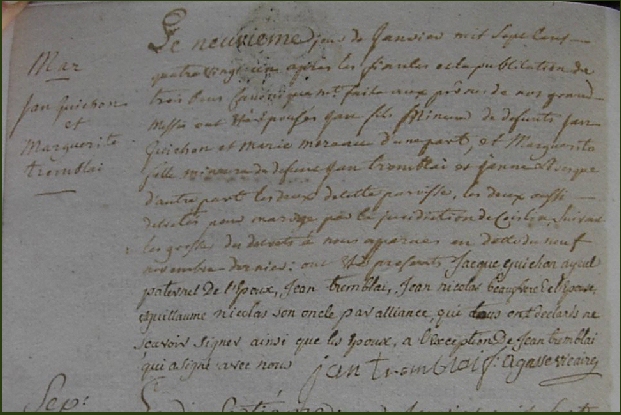 Mar
Jan Guichon
et
Marguerite
tremblai
Le neuvieme jour de Janvier mil Sept Cent
quatre vingt après les fiancailles et la publication de
trois bans canoniquement faite aux prônes de nos grand
Messes ont été épousés Jan fils Mineur de defunts Jan
Guichon et marie moreau d'une part, et Marguerite
fille mineure de defunt Jan tremblai et janne
d'autre part les deux de cette paroisse, les deux
decretés pour mariage par la juridiction de suivant
les grosses des decrets à nous apparues en datte du neuf
novembre dernier: ont été presents Jacque guichon ayeul
paternel de l'Epoux, Jean tremblai, Jean nicolas beaufrere de l'épouse,
et guillaume nicolas son oncle par alliance, qui tous ont declaré ne
scavoir signer ainsi que les Epoux, a l'Exception De Jean tremblai
qui a signé avec nous jan tremblai f: agasse vicaire
Sep: